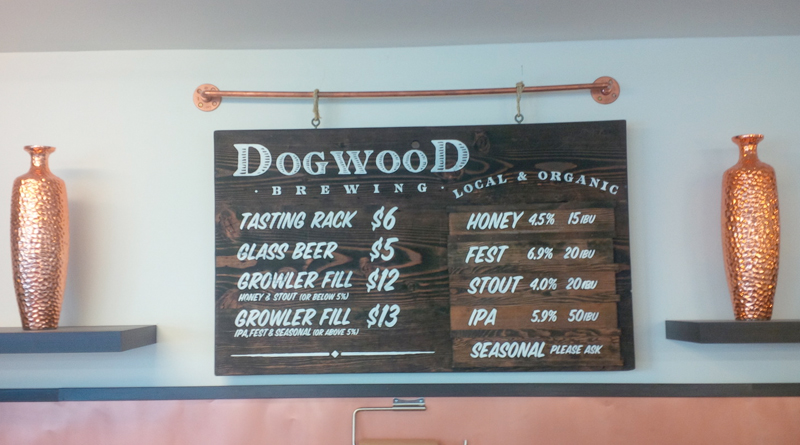 DOGWOOD
· BREWING ·
LOCAL & ORGANIC
TASTING RACK $6
GLASS BEER $5
GROWLER FILL $12
HONEY & STOUT (OR BELOW 5%)
GROWLER FILL $13
IPA, FEST & SEASONAL (OR ABOVE 5%)
HONEY 4.5% 15 IBU
FEST 6.9% 20 IBU
STOUT 4.0% 20 IBU
IPA 5.9% 50 IBU
SEASONAL PLEASE ASK